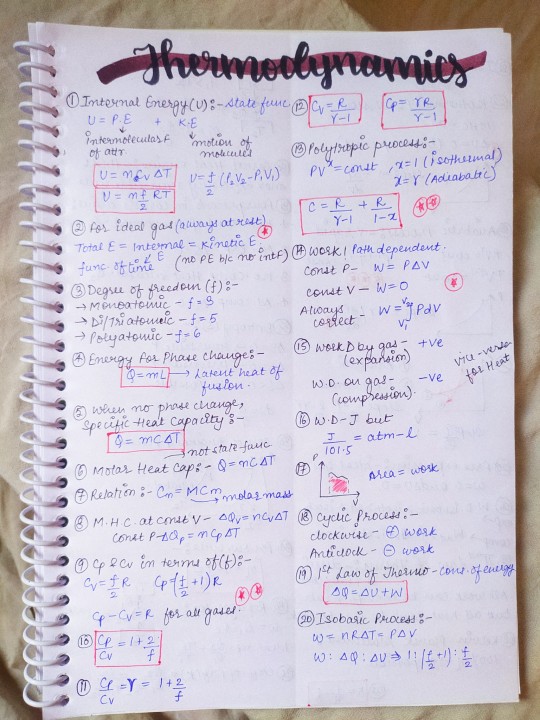 Thermodynamics
① Internal Energy (U) :- State func.
U = P.E + K.E
intermolecular f of attr
motion of molecules
U = nCvΔT
U = nf/2 RT
U = f/2 (P₂V₂ - P₁V₁)
② For ideal gas (always at rest)
Total E = Internal E = Kinetic E
func. of time (no PE b/c no int F)
③ Degree of freedom (f) :-
→ Monoatomic - f = 3
→ Di/Triatomic - f = 5
→ Polyatomic - f = 6
④ Energy for Phase change :-
Q = mL → Latent heat of
fusion.
⑤ When no phase change,
Specific Heat Capacity :-
Q = mCΔT
→ not state func
⑥ Molar Heat Cap :- Q = nCΔT
⑦ Relation :- Cm = MCm → molar mass
⑧ M.H.C. at const V - ΔQv = nCvΔT
const P → ΔQp = nCpΔT
⑨ Cp & Cv in terms of (f) :-
Cv = f/2 R Cp = (f/2 + 1) R
Cp - Cv = R for all gases.
⑩ Cp/Cv = 1 + 2/f
⑪ Cp/Cv = γ = 1 + 2/f
⑫ Cv = R/γ-1 Cp = γR/γ-1
⑬ Polytropic process :-
PVˣ = const, x = 1 (isothermal)
x = γ (Adiabatic)
C = R/γ-1 + R/1-x
⑭ Work / Path dependent.
const P - W = PΔV
const V - W = 0
Always
correct - W = ∫ᵥ₁ᵛ² PdV
⑮ Work D by gas - +ve
(expansion)
W.D. on gas - -ve
(compression)
vice-versa
for Heat
⑯ W.D - J but
J/101.5 = atm-l
⑰ P V Area = work
⑱ Cyclic Process :-
clockwise - ⊕ work
Anticlock - ⊖ work
⑲ 1st Law of Thermo - cons. of energy
ΔQ = ΔU + W
⑳ Isobaric Process :-
W = nRΔT = PΔV
W : ΔQ : ΔU ⇒ 1 : (f/2 + 1) : f/2